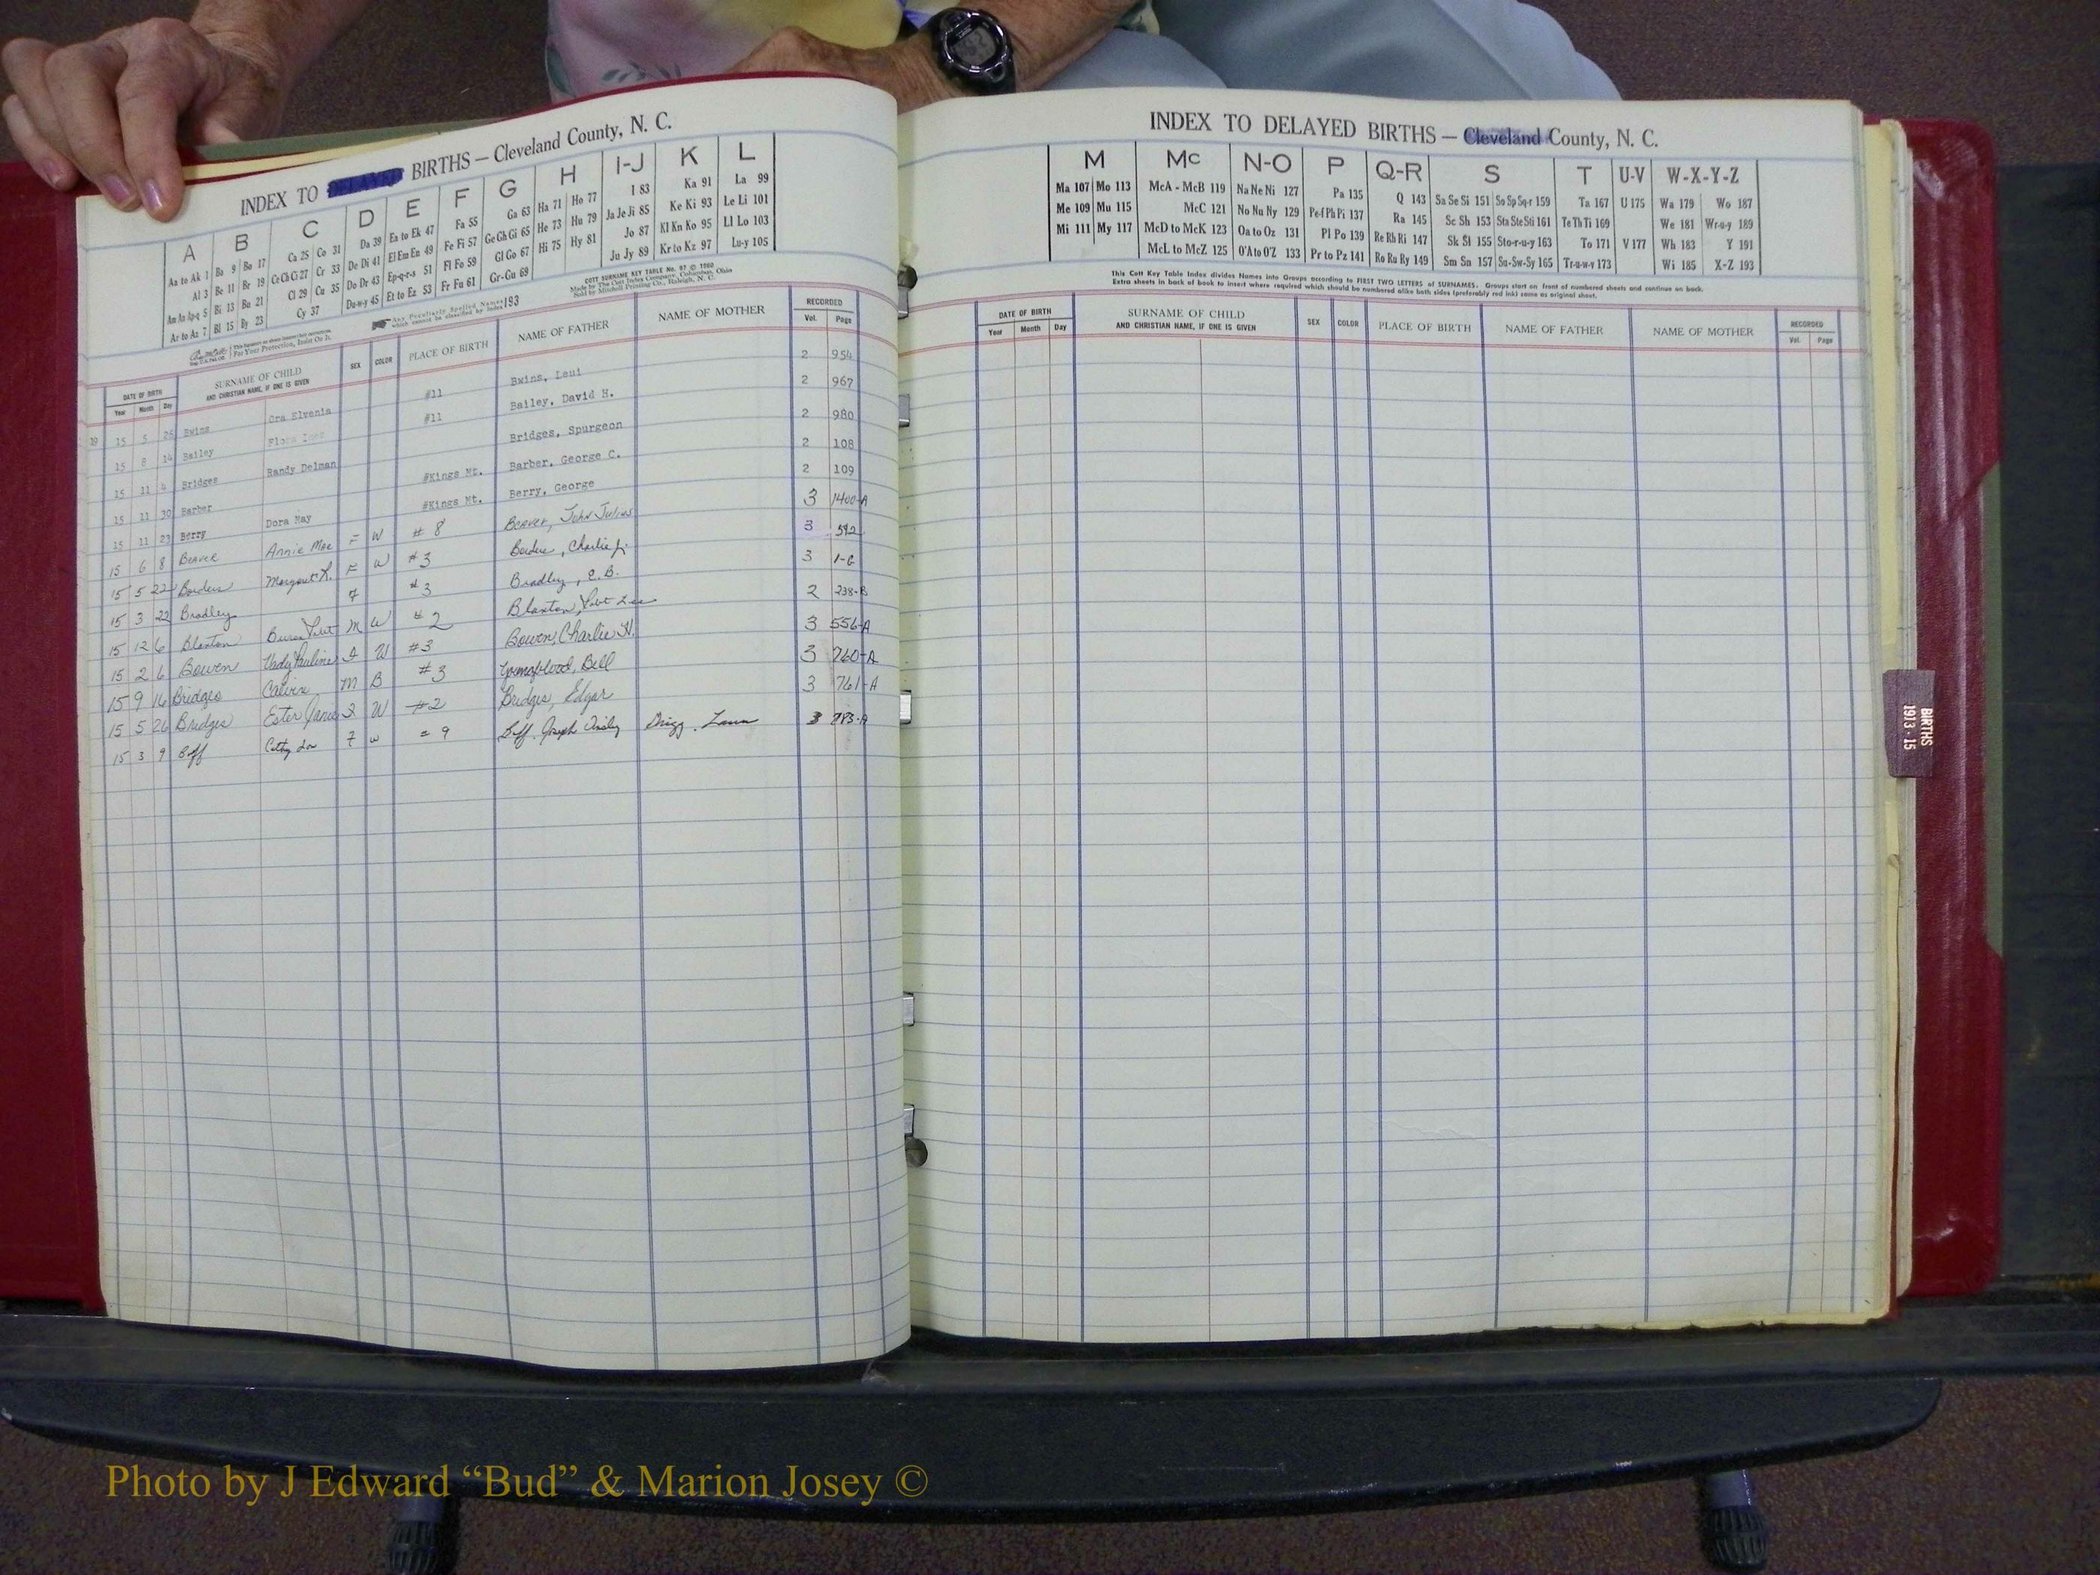 INDEX TO DELAYED BIRTHS — Cleveland County, N. C.
A B C D E F G H I-J K L
Aa to Ak 1 Ba 9 Bo 17 Ca 25 Co 31 Da 39 Ea to Ek 47 Fa 55 Ga 63 Ha 71 Ho 77 I 83 Ka 91 La 99
Al 3 Be 11 Br 19 Ce Ch Ci 27 Cr 33 De Di 41 El Em En 49 Fe Fi 57 Ge Gh Gi 65 He 73 Hu 79 Ja Je Ji 85 Ke Ki 93 Le Li 101
Am An Ap-q 5 Bi 13 Bu 21 Cl 29 Cu 35 Do Dr 43 Ep-q-r-s 51 Fl Fo 59 Gl Go 67 Hi 75 Hy 81 Jo 87 Kl Kn Ko 95 Ll Lo 103
Ar to Az 7 Bl 15 By 23 Cy 37 Du-w-y 45 Et to Ez 53 Fr Fu 61 Gr-Gu 69 Ju Jy 89 Kr to Kz 97 Lu-y 105
Any Peculiarly Spelled Names which cannot be classified by Index 193
COTT SURNAME KEY TABLE No. 97 © 1960
Made by The Cott Index Company, Columbus, Ohio
Sold by Mitchell Printing Co., Raleigh, N. C.
For Your Protection, Insist On It.
DATE OF BIRTH SURNAME OF CHILD SEX COLOR PLACE OF BIRTH NAME OF FATHER NAME OF MOTHER RECORDED
Year Month Day AND CHRISTIAN NAME, IF ONE IS GIVEN Vol. Page
19 15 5 25 Bwins Ora Elvenia #11 Bwins, Leui 2 954
15 8 14 Bailey Flora Inez #11 Bailey, David H. 2 967
15 11 4 Bridges Randy Delman Bridges, Spurgeon 2 980
15 11 30 Barber #Kings Mt. Barber, George C. 2 108
15 11 23 Berry Dora May #Kings Mt. Berry, George 2 109
15 6 8 Beaver Annie Mae F W #8 Beaver, John Julius 3 1400-A
15 5 22 Borders Margaret L. F W #3 Borders, Charlie Jr. 3 592
15 3 22 Bradley F #3 Bradley, E. B. 3 1-G
15 12 6 Blanton M W #2 Blanton, Lee 2 238-B
15 2 6 Bowen Pauline F W #3 Bowen, Charlie H. 3 556-A
15 9 16 Bridges Calvin M B #3 Youngblood, Bill 3 760-A
15 5 26 Bridges Ester Janie F W #2 Bridges, Edgar 3 761-A
15 3 9 Biff F W = 9 Biff, Joseph 3 783-A
INDEX TO DELAYED BIRTHS — Cleveland County, N. C.
M Mc N-O P Q-R S T U-V W-X-Y-Z
Ma 107 Mo 113 McA - McB 119 Na Ne Ni 127 Pa 135 Q 143 Sa Se Si 151 So Sp Sq-r 159 Ta 167 U 175 Wa 179 Wo 187
Me 109 Mu 115 McC 121 No Nu Ny 129 Pe-f Ph Pi 137 Ra 145 Sc Sh 153 Sta Ste Sti 161 Te Th Ti 169 We 181 Wr-u-y 189
Mi 111 My 117 McD to McK 123 Oa to Oz 131 Pl Po 139 Re Rh Ri 147 Sk Sl 155 Sto-r-u-y 163 To 171 V 177 Wh 183 Y 191
McL to McZ 125 O'A to O'Z 133 Pr to Pz 141 Ro Ru Ry 149 Sm Sn 157 Su-Sw-Sy 165 Tr-u-w-y 173 Wi 185 X-Z 193
This Cott Key Table Index divides Names into Groups according to FIRST TWO LETTERS of SURNAMES. Groups start on front of numbered sheets and continue on back.
Extra sheets in back of book to insert where required which should be numbered alike both sides (preferably red ink) same as original sheet.
DATE OF BIRTH SURNAME OF CHILD SEX COLOR PLACE OF BIRTH NAME OF FATHER NAME OF MOTHER RECORDED
Year Month Day AND CHRISTIAN NAME, IF ONE IS GIVEN Vol. Page
BIRTHS
1913 - 15
Photo by J Edward “Bud” & Marion Josey ©